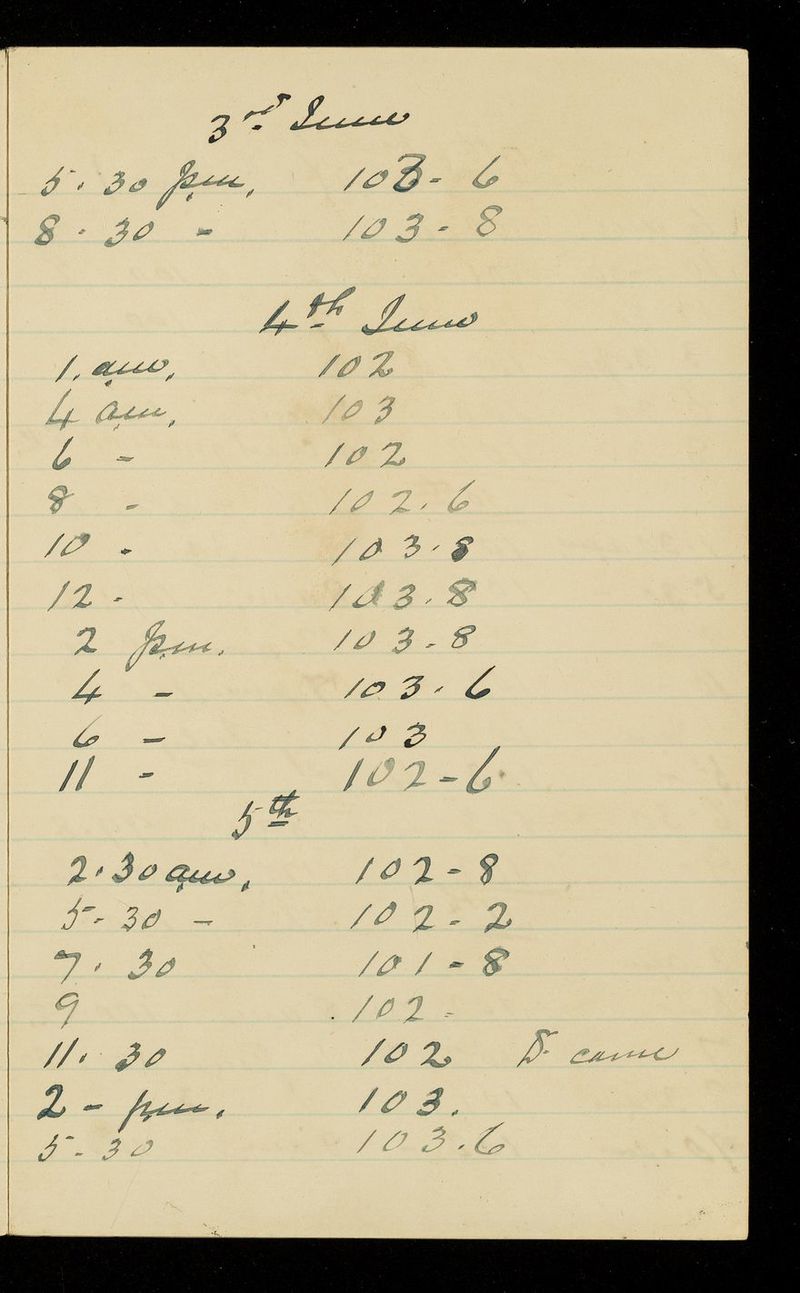 3rd June
5. 30 pm. 103- 6
8 - 30 - 103 - 8
4th June
1. am. 102
4 am. 103
6 - 102
8 - 102. 6
10 - 103.8
12 - 103.8
2 pm. 103-8
4 - 103. 6
6 - 103
11 - 102-6
5th
2.30 am. 102-8
5-30 - 102-2
7. 30 101-8
9 102-
11. 30 102 Dr came
2 - pm. 103.
5-30 103.6